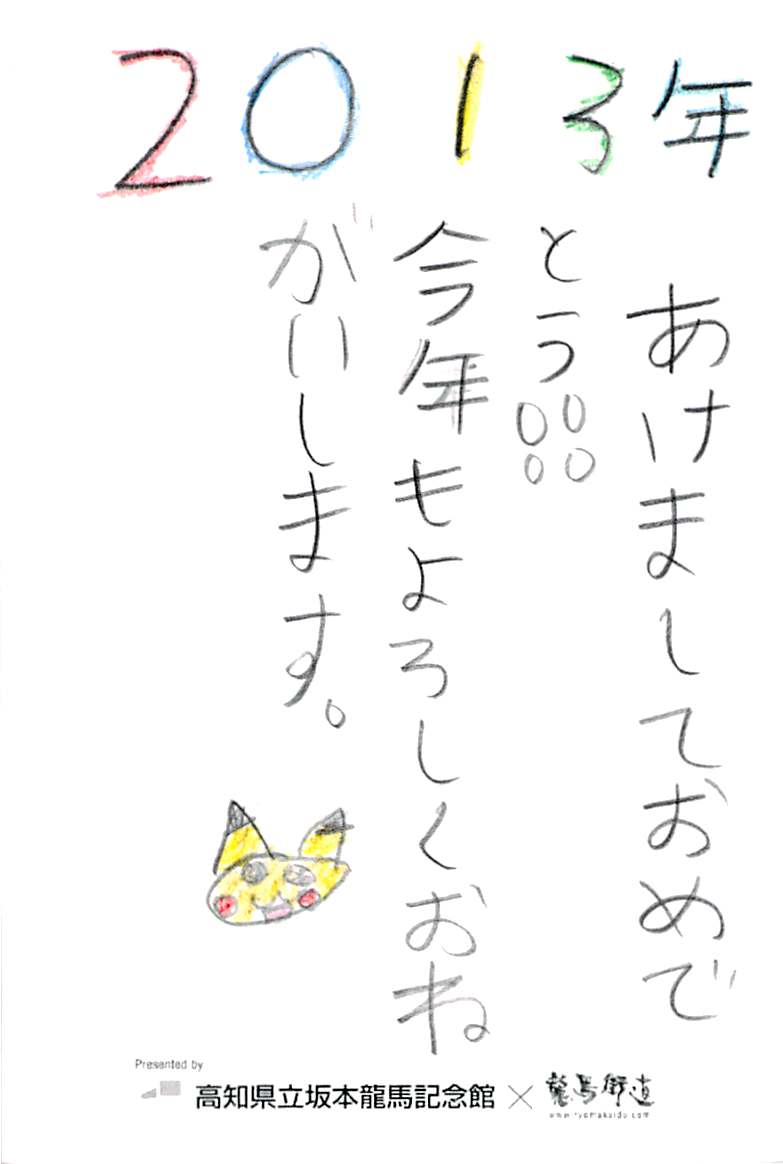 2013年
あけましておめで
とう
今年もよろしくおね
がいします。
Presented by
高知県立坂本龍馬記念館×龍馬街道
www.ryomakaido.com